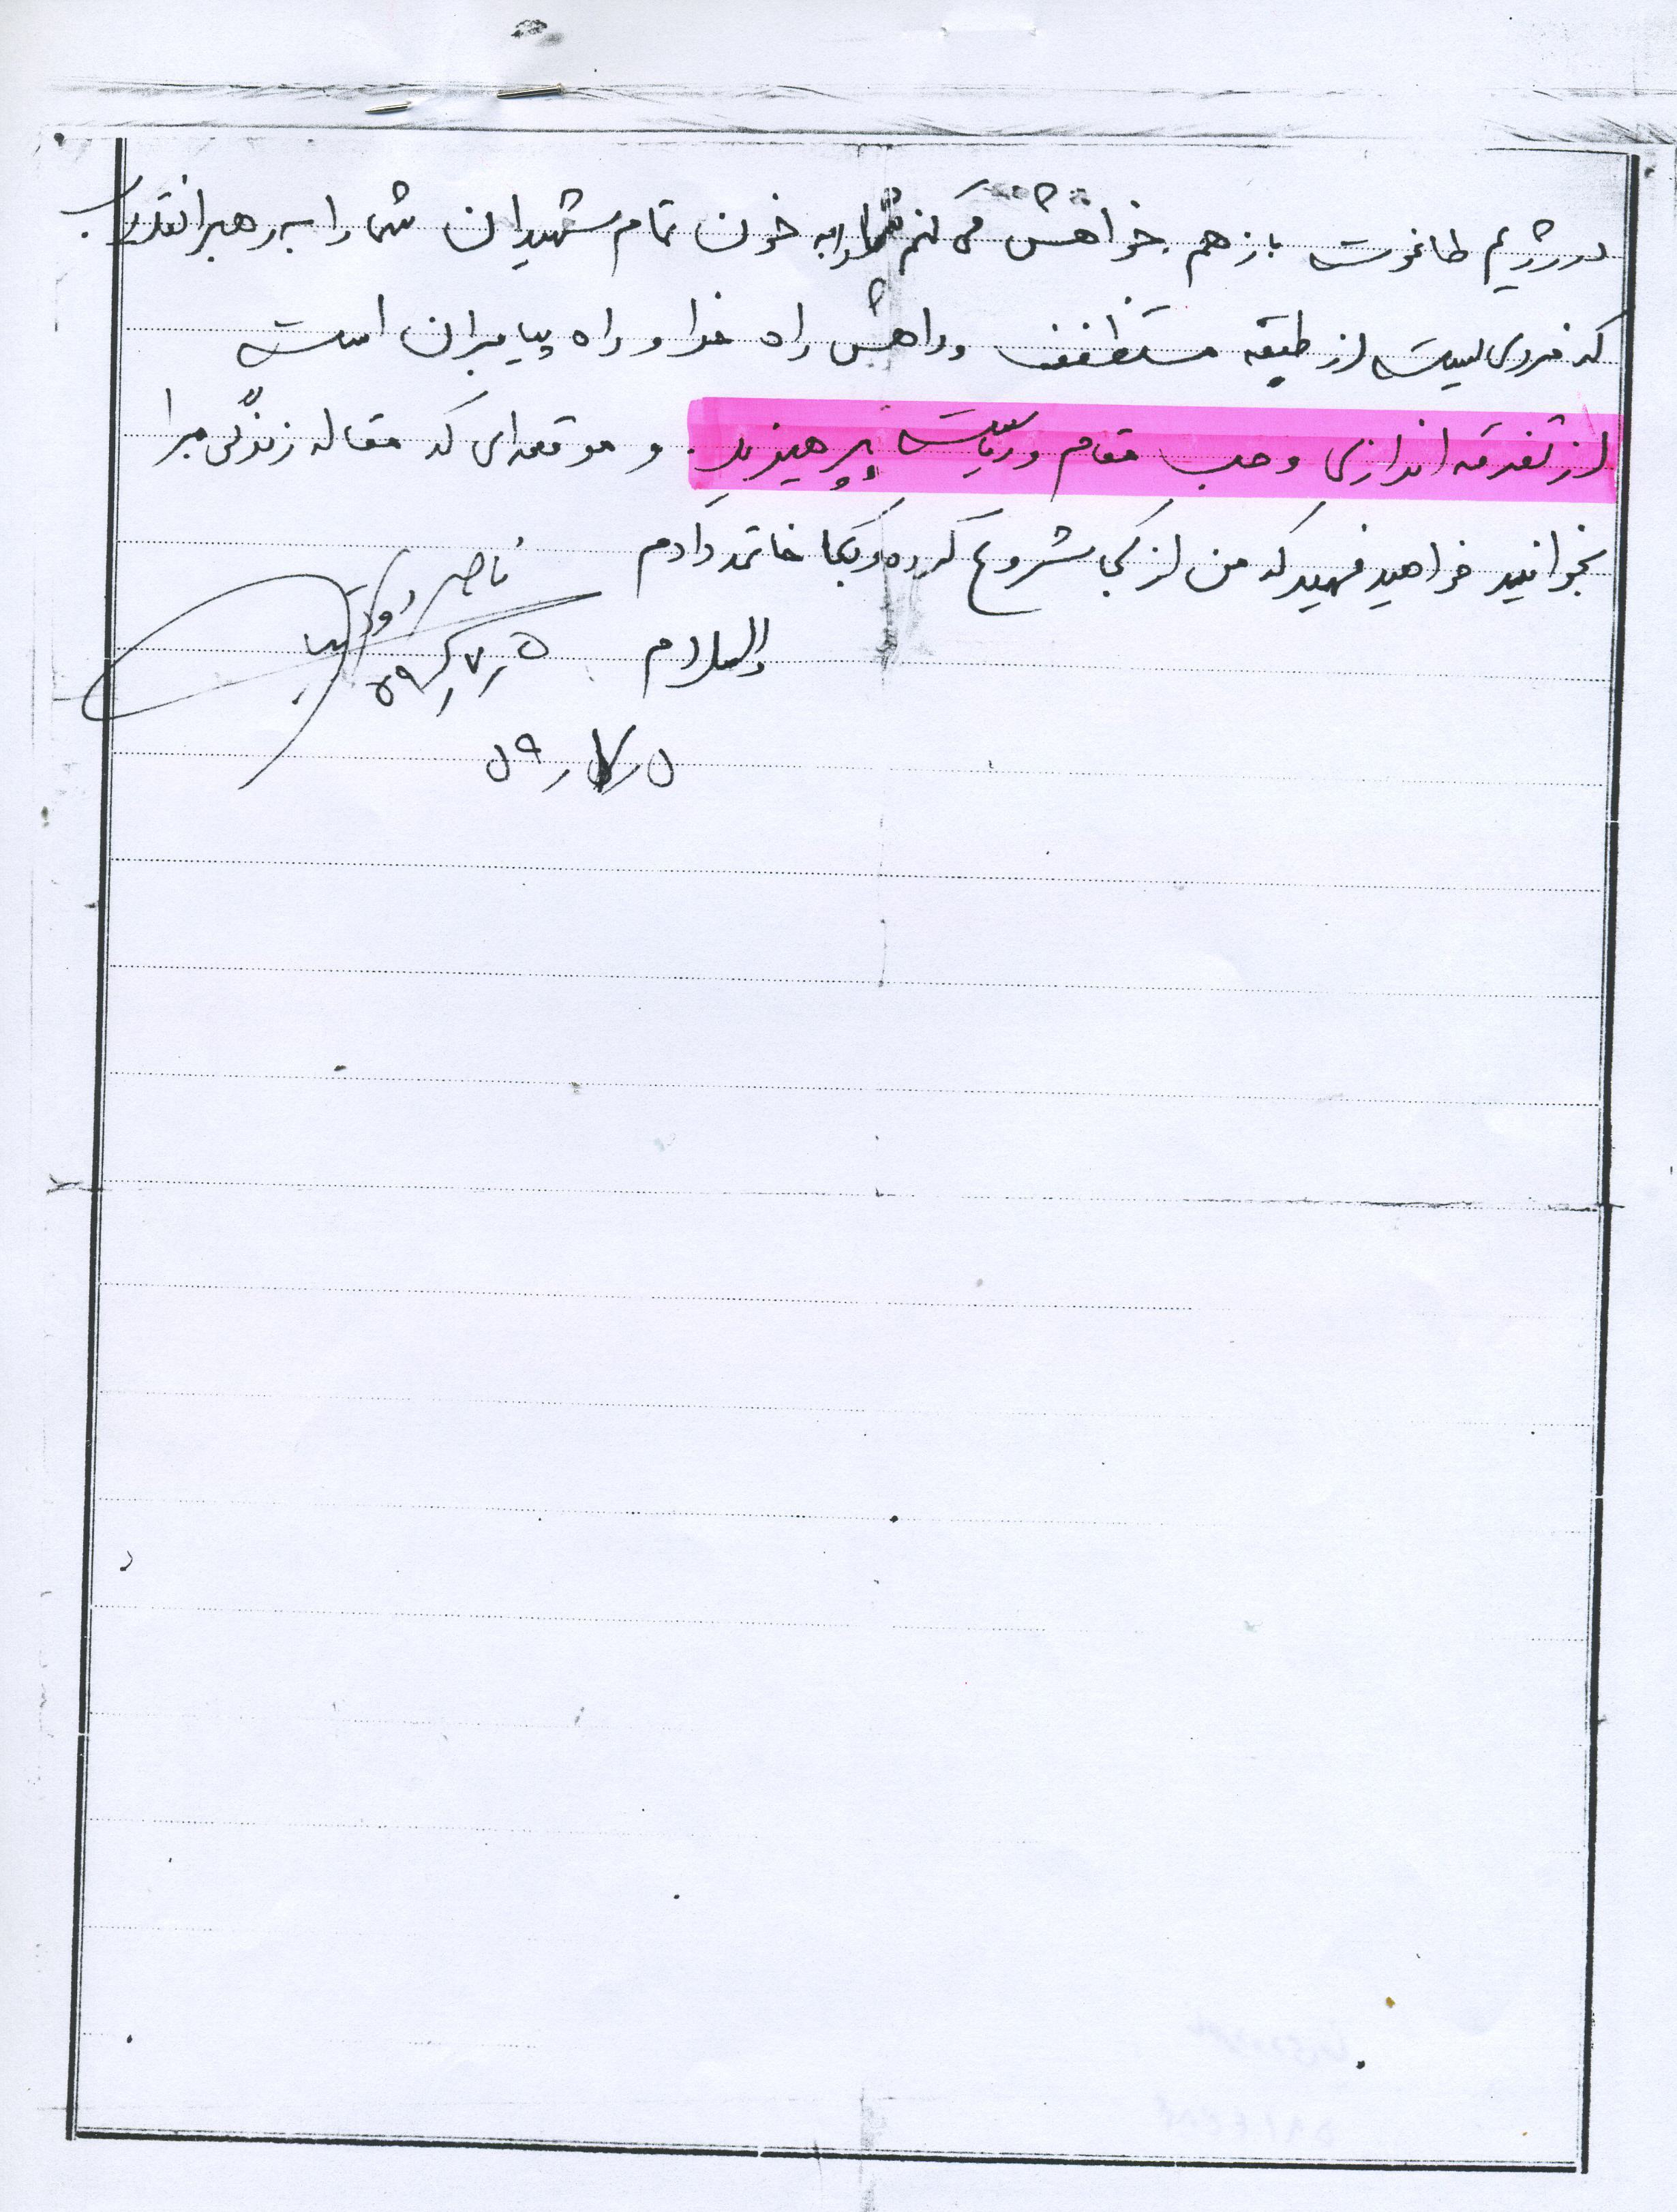 در رژیم طاغوت باز هم خواهش می کنم شما را به خون تمام شهیدان شما را به رهبر انقلاب
که فردی است از طبقه مستظفف و راهش راه خدا و راه پیامبران است
از تفرقه اندازی و حب مقام و ریاست بپرهیزید. و موقعه ای که مقاله زندگی مرا
بخوانید خواهید فهمید که من از کجا شروع کرده و بکجا خاتمه دادم
والسلام ناصر
۵/۷/۵۹
۵/۷/۵۹